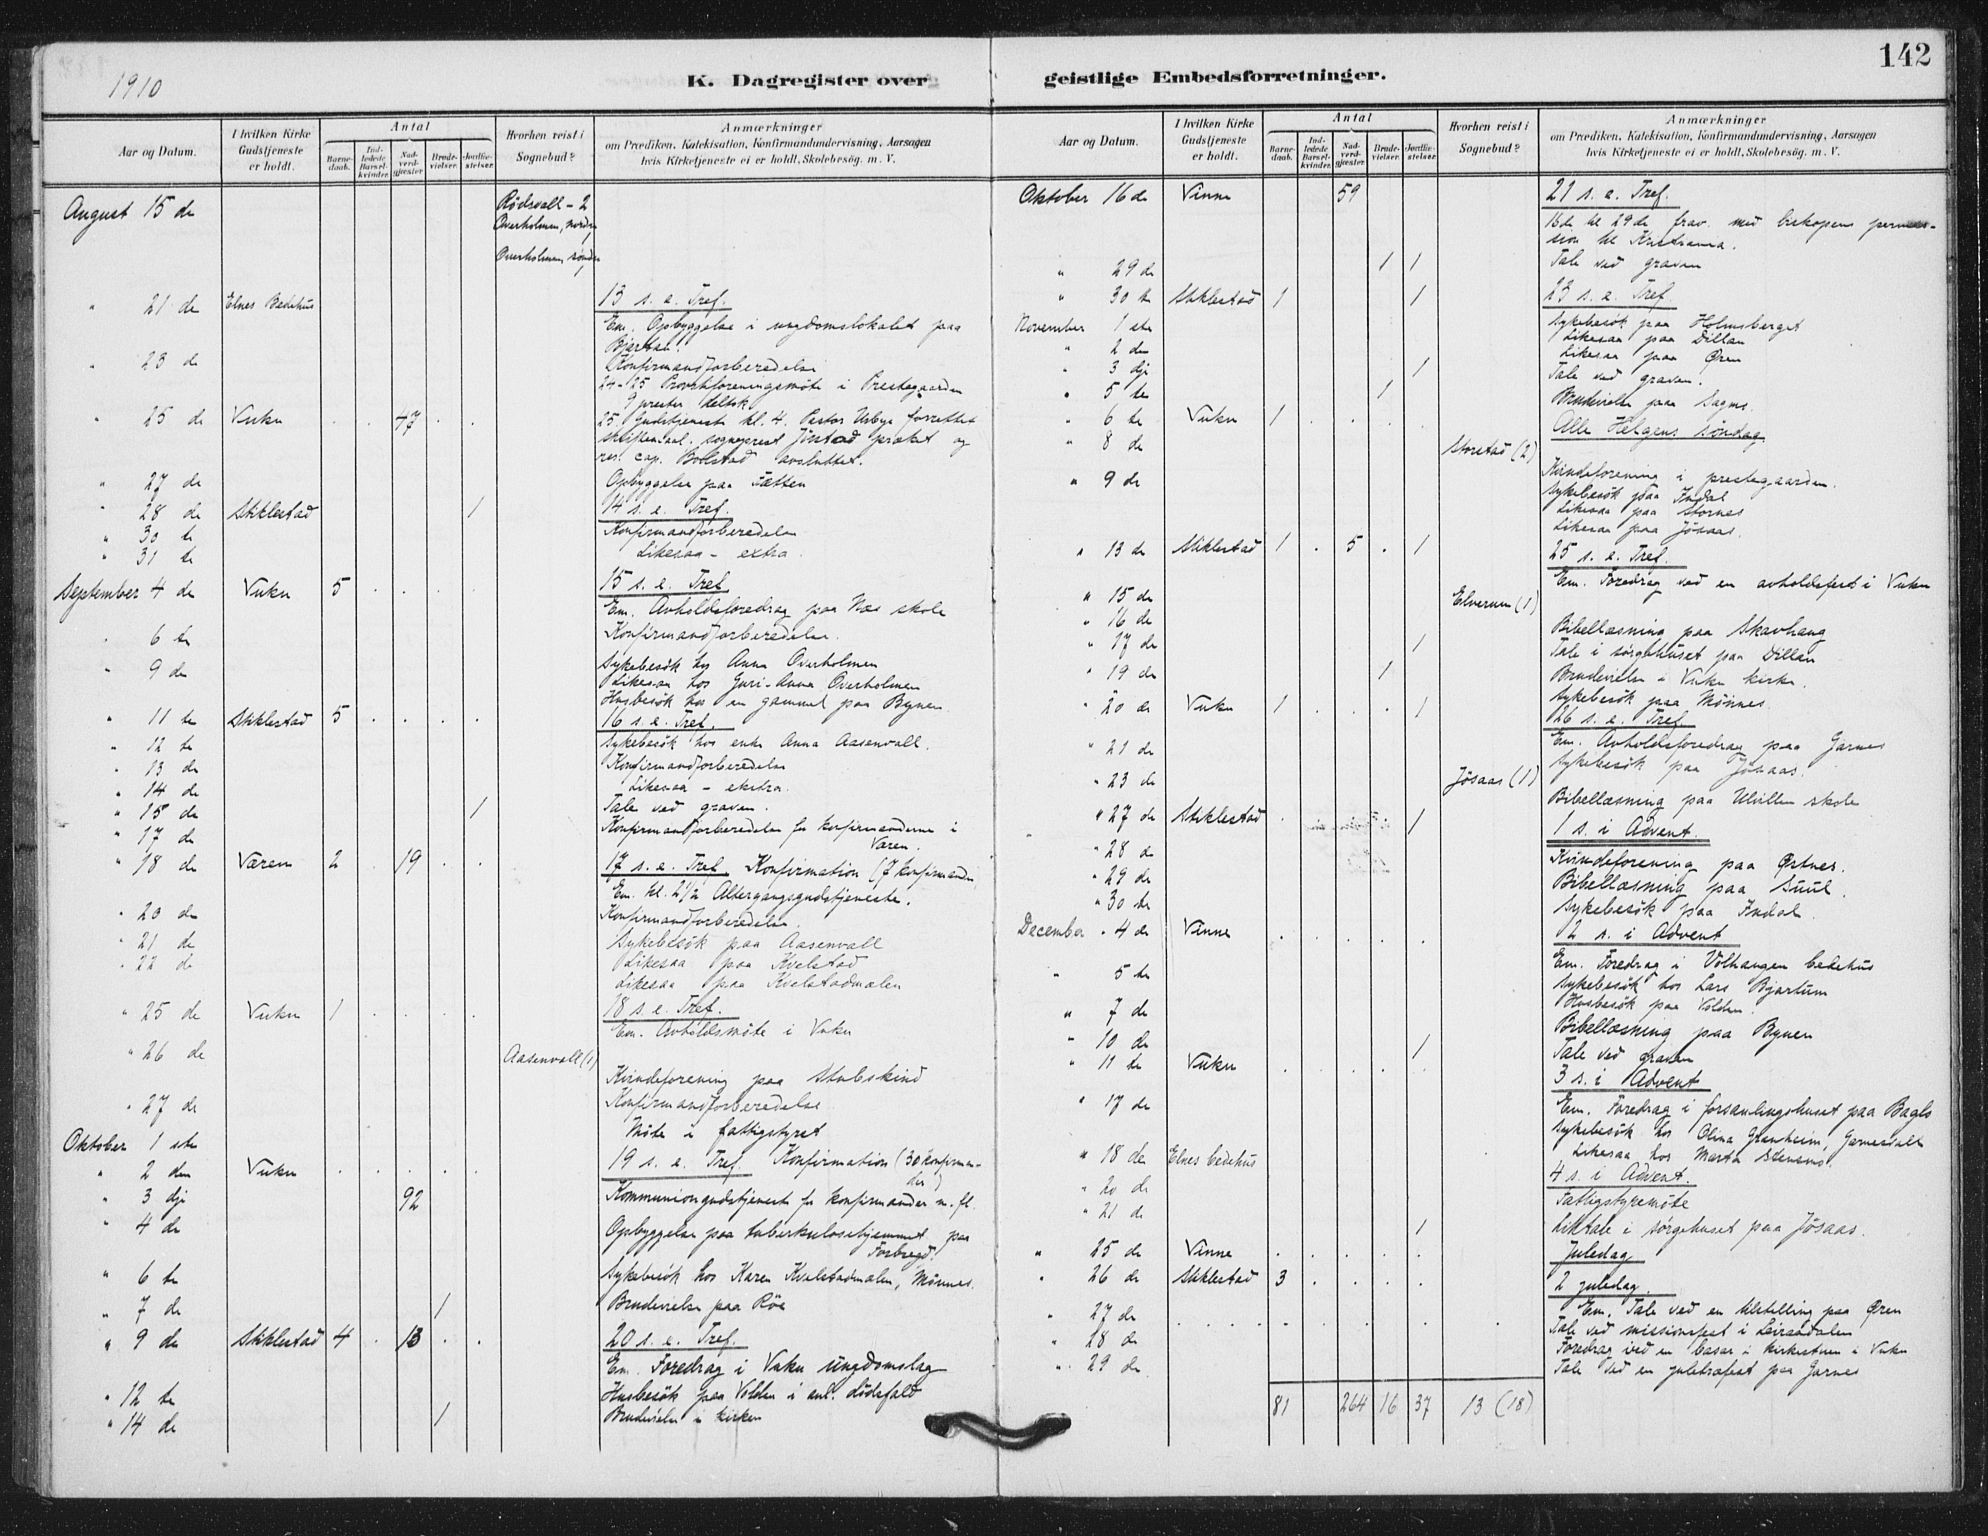 1910
K. Dagregister over
Aar og Datum.
I hvilken Kirke Gudstjeneste er holdt.
Antal
Barne-daab.
Ind-ledede Barsel-kvinder.
Nad-verd-gjæster.
Brude-vielser.
Jordfæ-stelser.
Hvorhen reist i Sognebud?
Anmærkninger
om Prædiken, Katekisation, Konfirmandundervisning, Aarsagen
hvis Kirketjeneste ei er holdt, Skolebesøg. m. V.
August 15 de Rødsvall - 2
Overholmen, nordre
Overholmen, søndre
" 21 de Elnes Bedehus 13 s. e. Tref.
Em. Opbyggelse i ungdomslokalet paa
Bjartan.
" 23 de Konfirmandforberedelse
24-25 Provstiforeningsmöte i Prestegaarden
9 prester deltok
" 25 de Vuku . . 47 . . 25. Gudstjeneste kl. 4. Pastor Urbye forrettet
skriftemaal. sogneprest Jørstad præket og
res. cap. Bolstad avsluttet.
" 27 de Opbyggelse paa Tætten
" 28 de Stiklestad 1 14 s. e. Tref.
" 30 te Konfirmandforberedelse
" 31 te Likesaa - extra.
September 4 de Vuku 5 . . . . 15 s. e. Tref
Em. Avholdsforedrag paa Næs skole
" 6 te Konfirmandforberedelse.
" 9 de Sykebesök hos Anna Overholmen
Likesaa hos Guri-Anna Overholmen
Husbesök hos en gammel paa Bynen
" 11 te Stiklestad 5 . . . . 16 s. e. Tref.
" 12 te Sykebesök hos enke Anna Aasenvall.
" 13 de Konfirmandforberedelse
" 14 de Likesaa - ekstra.
" 15 de 1 Tale ved graven.
" 17 de Konfirmandforberedelse for konfirmanderne i
Væren.
" 18 de Væren 2 . 19 . . 17 s. e. Tref. Konfirmation (7 konfirmander
Em. kl. 2 1/2 Altergangsgudstjeneste.
" 20 de Konfirmandforberedelse.
" 21 de Sykebesök paa Aasenvall
" 22 de Likesaa paa Kvelstad
Likesaa paa Kvelstadmælen
" 25 de Vuku 1 . . . . 18 s. e. Tref.
Em. Avholdsmöte i Vuku
" 26 de Aasenvall (1)
Kvindeforening paa Stubskind
" 27 de Konfirmandforberedelse
Oktober 1 ste Möte i fattigstyret
" 2 den Vuku . . . . . 19 s. e. Tref. Konfirmation (30 konfirman-
der)
" 3 dje 92 Kommuniongudstjeneste for konfirmander m. fl.
" 4 de Opbyggelse paa tuberkulosehjemmet paa
Forbregd.
" 6 te Sykebesök hos Karen Kvelstadmælen, Mönnes.
" 7 de 1 Brudevielse paa Röe
" 9 de Stiklestad 4 . 13 . . 20 s. e. Tref.
Em. Foredrag i Vuku ungdomslag
" 12 te Husbesök paa Volden i anl. dödsfald
" 14 de 1 Brudevielse i kirken
142
geistlige Embedsforretninger.
Aar og Datum.
I hvilken Kirke Gudstjeneste er holdt.
Antal
Barne-daab.
Ind-ledede Barsel-kvinder.
Nad-verd-gjæster.
Brude-vielser.
Jordfæ-stelser.
Hvorhen reist i Sognebud?
Anmærkninger
om Prædiken, Katekisation, Konfirmandundervisning, Aarsagen
hvis Kirketjeneste ei er holdt, Skolebesøg. m. V.
Oktober 16 de Vinne 59 21 s. e. Tref.
18de til 29de frav. med biskopens permis-
sion til Kristiania.
" 29 de 1 1 Tale ved graven
" 30 te Stiklestad 1 1 23 s. e. Tref.
November 1 ste Sykebesök paa Holmsberget
" 2 den Likesaa paa Dillan
Likesaa paa Øren
" 3 dje 1 Tale ved graven.
" 5 te 1 Brudevielse paa
" 6 te Vuku 1 . . . . Alle Helgens Søndag
" 8 de Storstad (2)
Kvindeforening i prestegaarden.
" 9 de Sykebesök paa Indal
Likesaa paa Stornes
Likesaa paa Jösaas.
" 13 de Stiklestad 1 . 5 . 1 25 s. e. Tref.
Em. Foredrag ved en avholdsfest i Vuku
" 15 de Elverum (1)
" 16 de Bibellæsning paa Skavhaug
" 17 de 1 Tale i sørgehuset paa Dillan
" 19 de 1 Brudevielse i Vuku kirke.
Sykebesök paa Mönnes.
" 20 de Vuku 1 . . . 1 26 s. e. Tref.
Em. Avholdsforedrag paa Garnes
" 21 de Sykebesök paa Jösaas.
" 23 de Jösaas (1)
Bibellæsning paa Ulvillen skole
" 27 de Stiklestad . 1 1 s. i Advent.
" 28 de Kvindeforening paa Østnes.
" 29 de Bibellæsning paa Suul.
" 30 te Sykebesök paa Indal.
December 4 de Vinne . . . . . 2 s. i Advent
Em. Foredrag i Volhaugen bedehus
" 5 te Sykebesök hos Lars Bjartum
Husbesök paa Volden.
" 7 de Bibellæsning paa Bynen
" 10 de 1 Tale ved graven
" 11 te Vuku . . . . . 3 s. i Advent
Em. Foredrag i forsamlingshuset paa Baglo
" 17 de Sykebesök hos Olina Granheim, Garnesdalen
Likesaa hos Marta Stensmo.
" 18 de Elnes bedehus 4 s. i Advent.
" 20 de Fattigstyremöte
" 21 de 1 Liktale i sørgehuset paa Jösaas.
" 25 de Vinne . . . . . Juledag
" 26 de Stiklestad 3 . . . . 2 juledag.
Em. Tale ved en tilstelling paa Øren
" 27 de Tale ved missionsfest i Leiraadalen
" 28 de Foredrag ved en basar i kirkestuen i Vuku
" 29 de Tale ved en juletræfest paa Garnes
81 264 16 37 13 (18)